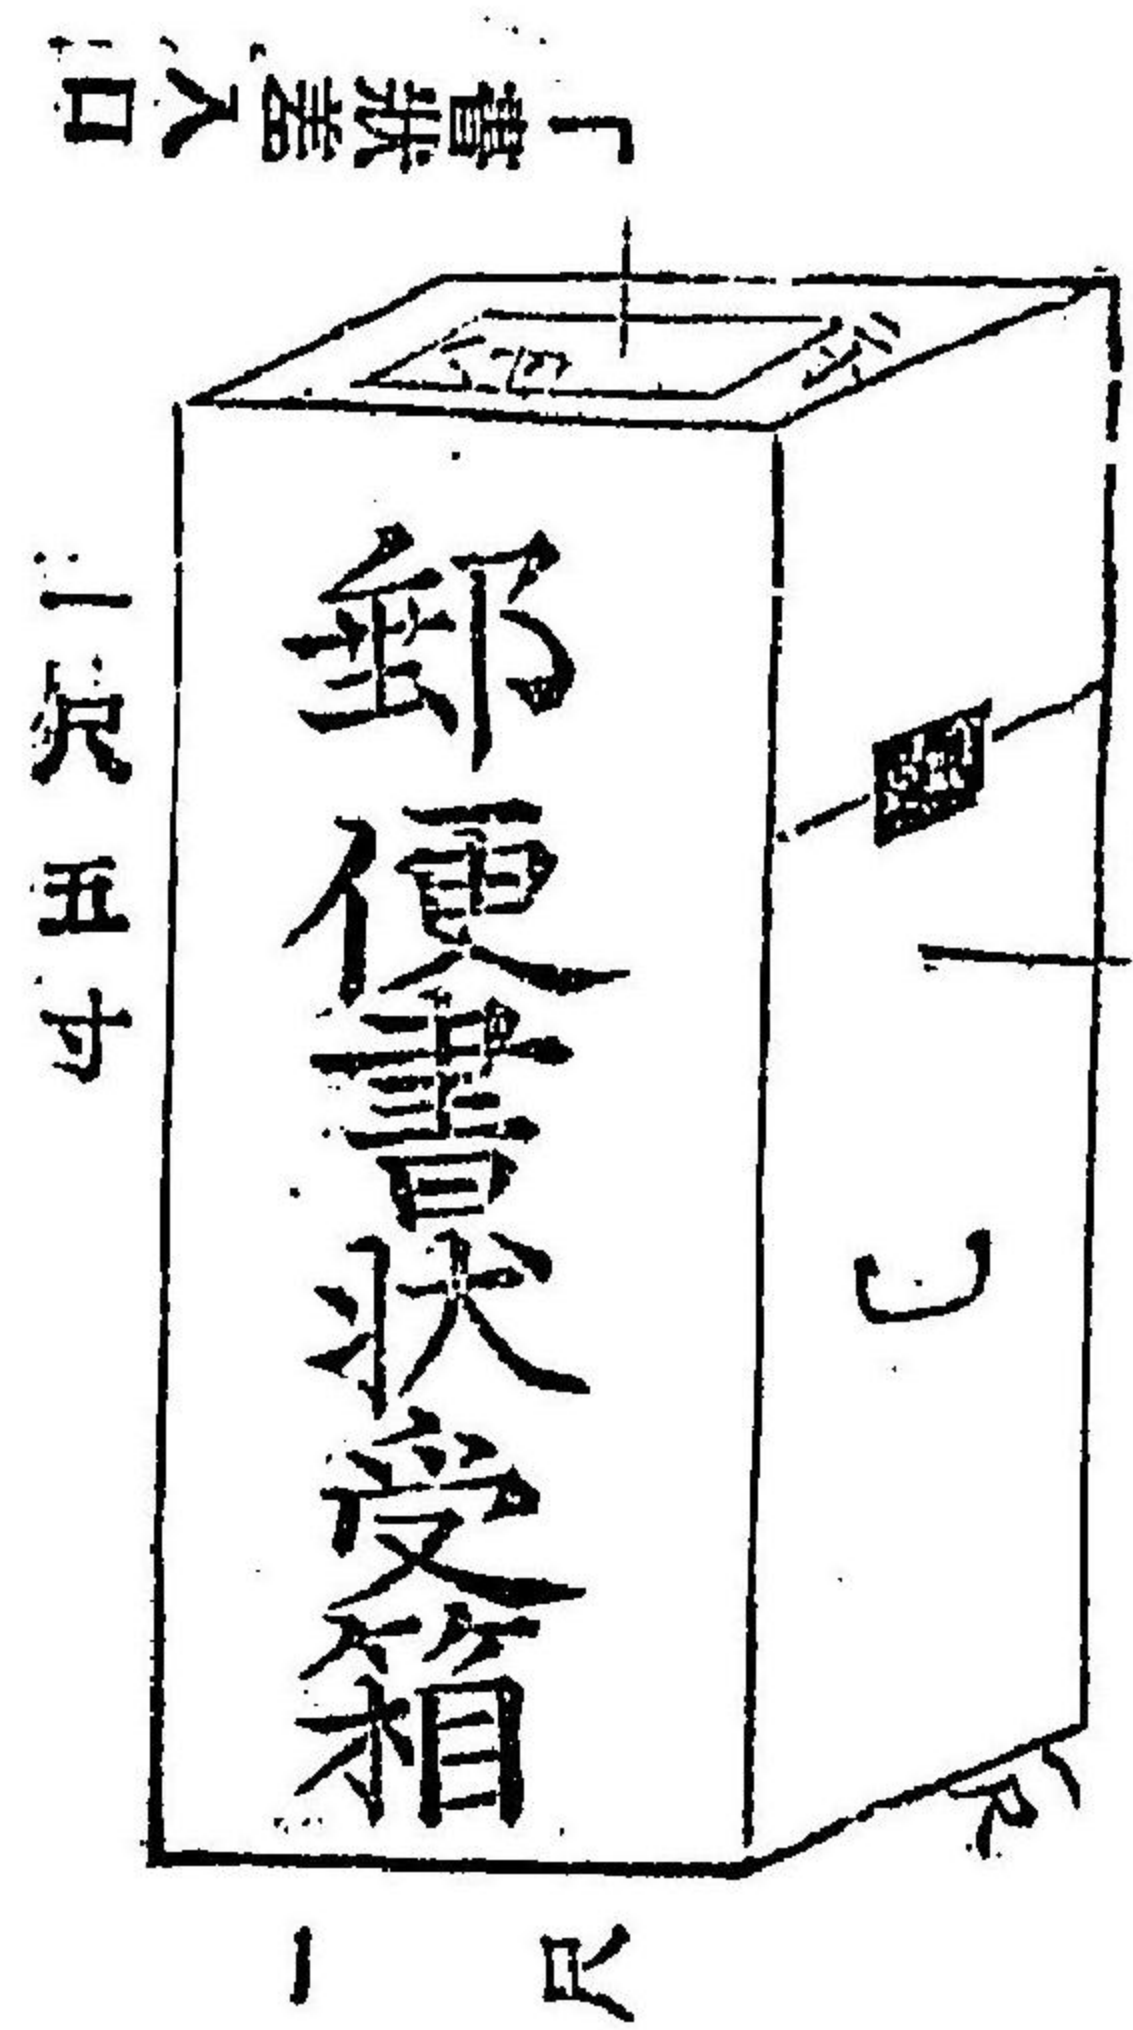 書状差入口
一尺五寸
郵便書状受箱
一尺